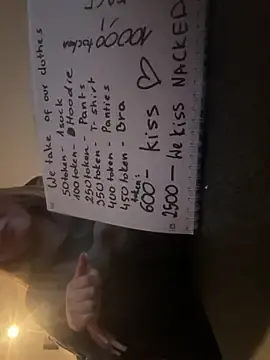 We take of our clothes
50 token - 1 suck
100 token - Hoodie
250 token - Pants
350 token - T-shirt
400 token - Panties
450 token - Bra
token:
600 - kiss ♡
2500 - We kiss NACKED
10000 token